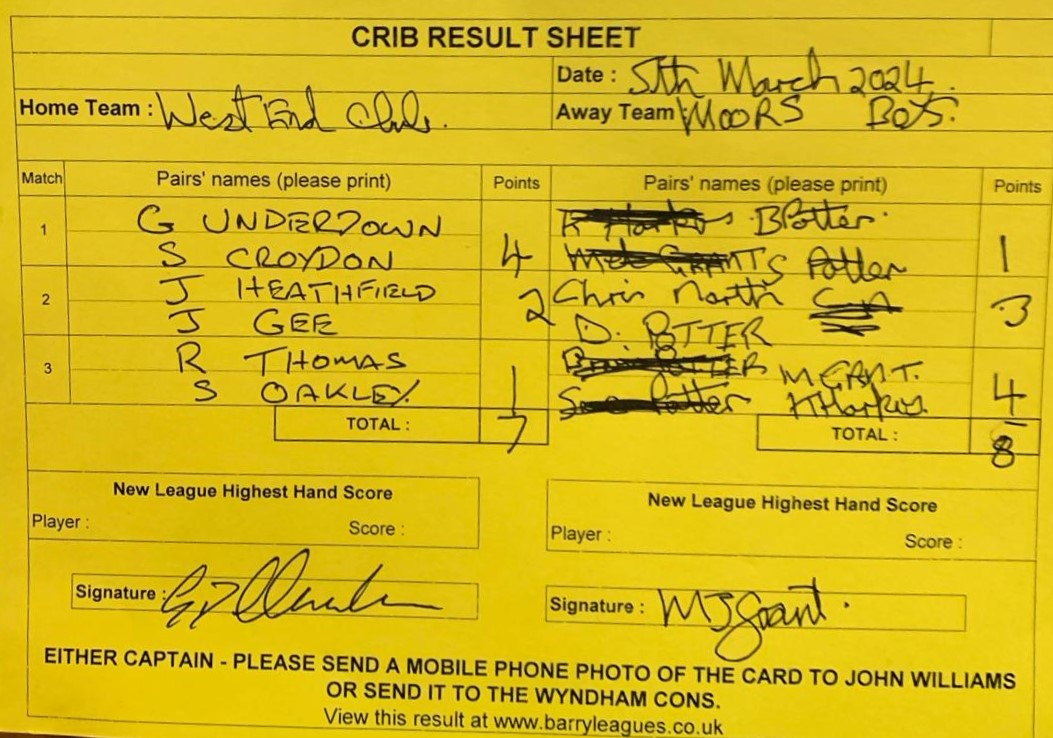 CRIB RESULT SHEET
Date : 5th March 2024.
Home Team : West End Club. Away Team MOORS BOYS.
Match Pairs' names (please print) Points Pairs' names (please print) Points
1 G UNDERDOWN B Potter.
S CROYDON 4 S Potter 1
2 J HEATHFIELD 2 Chris North 3
J GEE D. POTTER
3 R THOMAS M GRANT.
S OAKLEY 1 K Harkus. 4
TOTAL : 7 TOTAL : 8
New League Highest Hand Score New League Highest Hand Score
Player : Score : Player : Score :
Signature : Signature : MJ Grant.
EITHER CAPTAIN - PLEASE SEND A MOBILE PHONE PHOTO OF THE CARD TO JOHN WILLIAMS
OR SEND IT TO THE WYNDHAM CONS.
View this result at www.barryleagues.co.uk